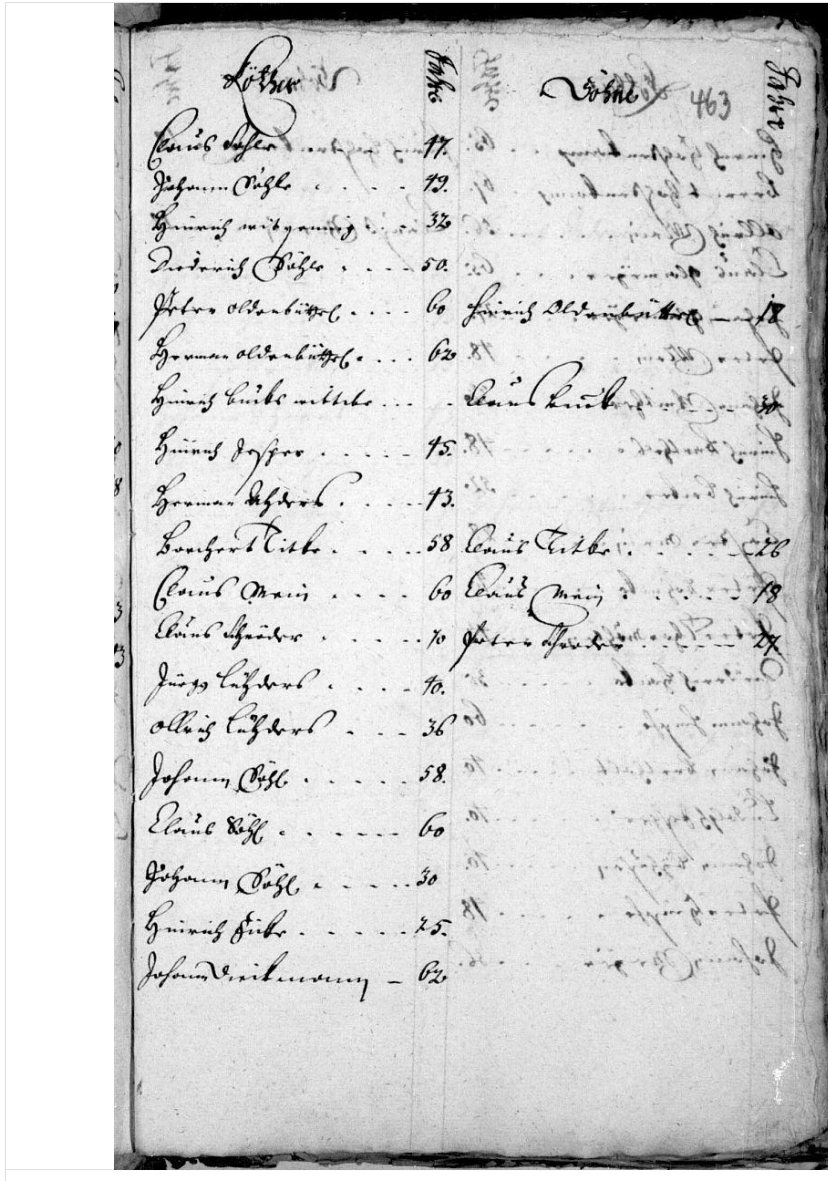 Köther Jahr Söhne Jahre
463
Claus Söhle 47.
Johann Söhle 49.
Hinrich 32
Diederich Söhle 50.
Peter Oldenbüttel 60 Hinrich Oldenbüttel 18
Herman Oldenbüttel 62
Hinrich Bucks wittibe Claus Buck 30
Hinrich Jesper 45.
Herman Lühders 43.
Borchert Titke 58 Claus Titke 26
Claus Mein 60 Claus Mein 18
Claus Schröder 70 Peter Schröder 27
Jürgn Lühders 40.
Ollrich Lühders 36
Johann Söhl 58.
Claus Söhl 60
Johann Söhl 30
Hinrich Ficke 25.
Johann Dieckmann 62